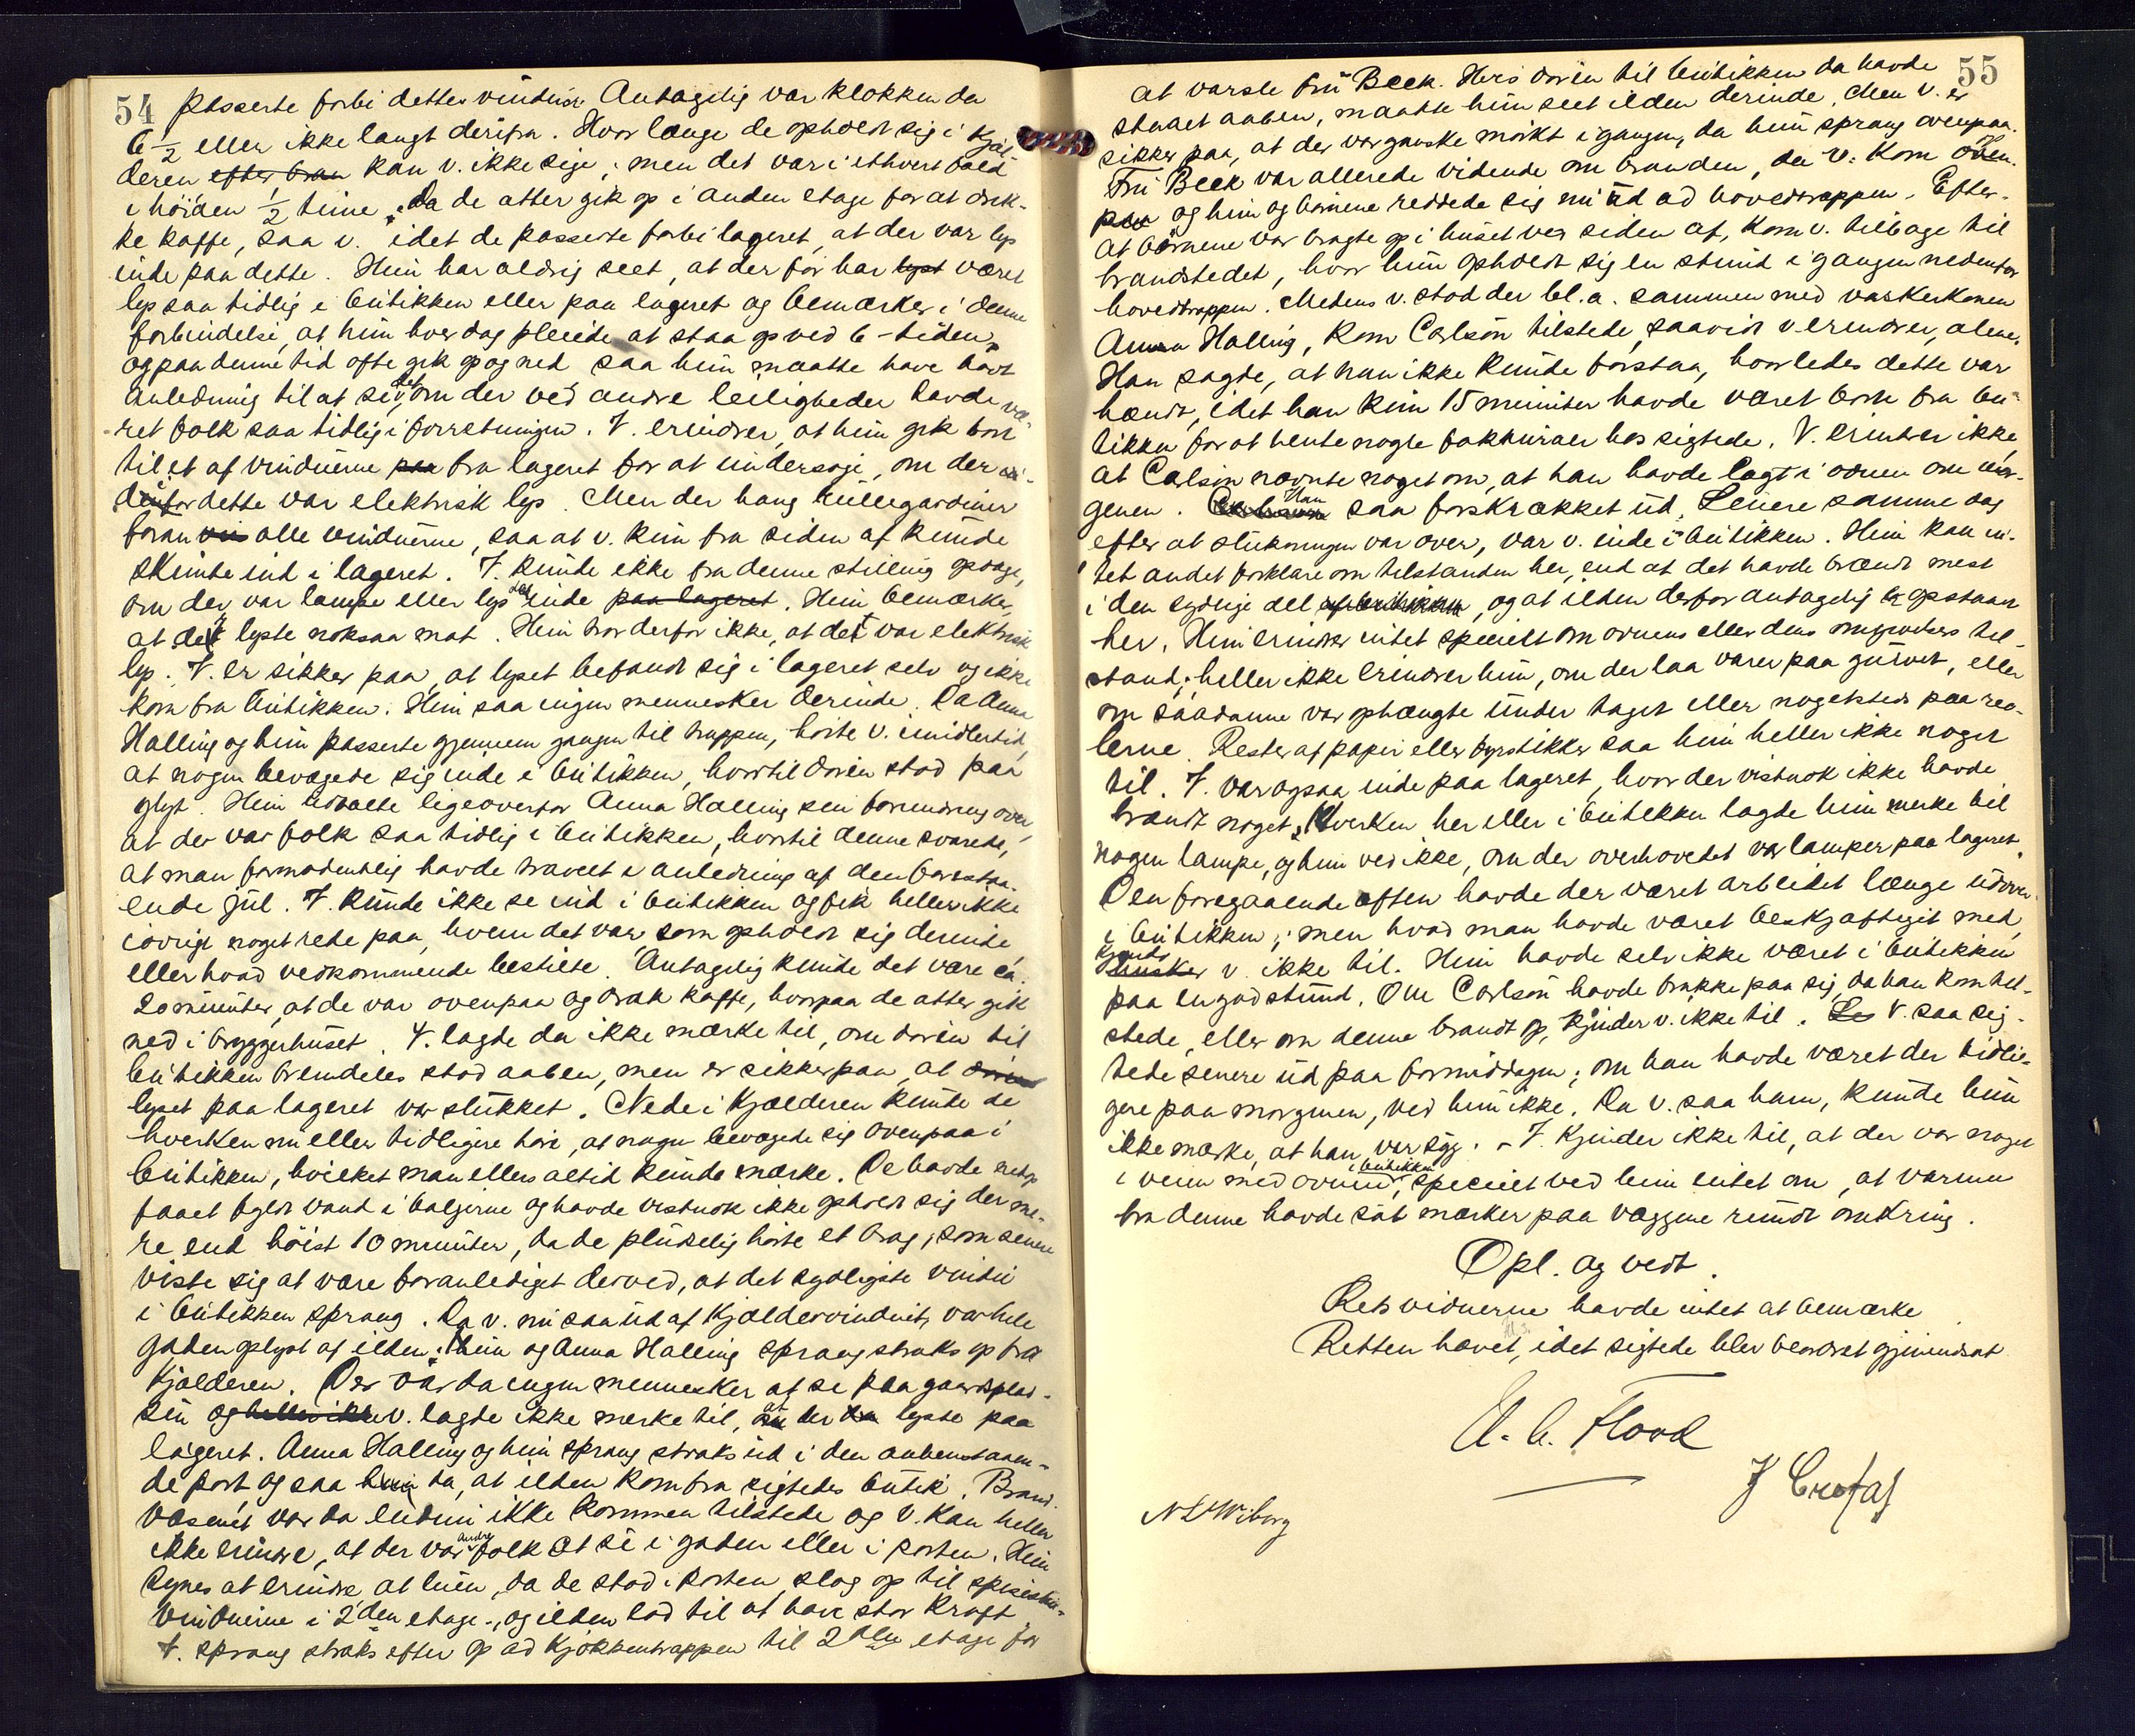 54
passerte forbi dettes vinduer. Antagelig var klokken da
6 1/2 eller ikke langt derifra. Hvor længe de opholdt sig i kjæl-
deren efter bran kan v. ikke sige; men det var i ethvert fald
i høiden 1/2 time. Da de atter gik op i anden etage for at drik-
ke kaffe, saa v. idet de passerte forbi lageret, at der var lys
inde paa dette. Hun har aldrig seet, at der før har lyst været
lys saa tidlig i butikken eller paa lageret og bemærker i denne
forbindelse, at hun hver dag pleiede at staa op ved 6-tiden,
og paa denne tid ofte gik op og ned saa hun maatte have havt
anledning til at se det, om der ved andre leiligheder havde væ-
ret folk saa tidlig i forretningen. V. erindrer, at hun gik bort
til et af vinduerne paa fra lageret for at undersøge, om der in-
denfor dette var elektrisk lys. Men der hang rullegardiner
foran vis alle vinduerne, saa at v. kun fra siden af kunde
skimte ind i lageret. V. kunde ikke fra denne stilling opdage,
om der var lampe eller lys derinde paa lageret. Hun bemærker,
at det lyste noksaa mat. Hun tror derfor ikke, at det var elektrisk
lys. V. er sikker paa, at lyset befandt sig i lageret selv og ikke
kom fra butikken. Hun saa ingen mennesker derinde. Da Anna
Halling og hun passerte gjennem gangen til trappen, hørte v. imidlertid,
at nogen bevægede sig inde i butikken, hvortil døren stod paa
glyt. Hun udtalte ligeoverfor Anna Halling sin forundring over,
at der var folk saa tidlig i butikken, hvortil denne svarede,
at man formodentlig havde travelt i anledning af den forestaa-
ende jul. V. kunde ikke se ind i butikken og fik heller ikke
iøvrigt noget rede paa, hvem det var som opholdt sig derinde
eller hvad vedkommende bestilte. Antagelig kunde det være ca.
20 minuter, at de var ovenpaa og drak kaffe, hvorpaa de atter gik
ned i bryggerhuset. V. lagde da ikke mærke til, om døren til
butikken fremdeles stod aaben, men er sikker paa, at døren
lyset paa lageret var slukket. Nede i kjælderen kunde de
hverken nu eller tidligere høre, at nogen bevægede sig ovenpaa i
butikken, hvilket man ellers altid kunde mærke. De havde netop
faaet fyldt vand i baljerne og havde vistnok ikke opholdt sig der me-
re end høist 10 minuter, da de pludselig hørte et brag, som senere
viste sig at være foranlediget derved, at det sydligste vindu
i butikken sprang. Da v. nu saa ud af kjældervinduet, var hele
gaden oplyst af ilden; hun og Anna Halling sprang straks op fra
kjælderen. Der var da ingen mennesker at se paa gaardsplad-
sen og heller ikke v. lagde ikke mærke til, at der lyste paa
lageret. Anna Halling og hun sprang straks ud i den aabenstaaen-
de port og saa hun da, at ilden kom fra sigtedes butik. Brand-
væsenet var da endnu ikke kommen tilstede og v. kan heller
ikke erindre, at der var andre folk at se i gaden eller i porten. Hun
synes at erindre at luen, da de stod i porten slog op til spisestue-
vinduerne i 2den etage, og ilden lod til at have stor kraft
V. sprang straks efter op ad kjøkkentrappen til 2den etage for
55
at varsle fru Beck. Hvis døren til butikken da havde
staaet aaben, maatte hun seet ilden derinde. Men v. er
sikker paa, at der var ganske mørkt i gangen, da hun sprang ovenpaa.
Fru Beck var allerede vidende om branden, da v. kom op
paa og hun og børnene reddede sig nu ud ad hovedtrappen. Efter
at børnene var bragte op i huset ved siden af, kom v. tilbage til
brandstedet, hvor hun opholdt sig en stund i gangen nedenfor
hovedtrappen. Medens v. stod der bl.a. sammen med vaskerkonen
Anna Halling, kom Carlson tilstede, saavidt v. erindrer, alene.
Han sagde, at han ikke kunde forstaa, hvorledes dette var
hændt, idet han kun 15 minuter havde været borte fra bu-
tikken for at hente nogle fakturaer hos sigtede. V. erindrer ikke,
at Carlson nævnte noget om, at han havde lagt i ovnen om mor-
genen. Han saa forskrækket ud. Senere samme dag
efter at slukningen var over, var v. inde i butikken. Hun kan in-
tet andet forklare om tilstanden her, end at det havde brændt mest
i den sydlige del af butikken, og at ilden derfor antagelig er opstaaet
her. Hun erindrer intet specielt om ovnens eller dens omgivelsers til-
stand; heller ikke erindrer hun, om der laa varer paa gulvet, eller
om saadanne var ophængte under taget eller nogetsteds paa reo-
lerne. Rester af papir eller fyrstikker saa hun heller ikke noget
til. V. var ogsaa inde paa lageret, hvor der vistnok ikke havde
brændt noget. Hverken her eller i butikken lagde hun mærke til
nogen lampe, og hun ved ikke, om der overhovedet var lamper paa lageret.
Den foregaaende aften havde der været arbeidet længe udover
i butikken; men hvad man havde været beskjæftiget med,
kjender v. ikke til. Hun havde selv ikke været i butikken
paa en god stund. Om Carlson havde frakke paa sig, da han kom til-
stede, eller om denne brandt op, kjender v. ikke til. V. saa sig-
tede senere ud paa formiddagen; om han havde været der tidli-
gere paa morgenen, ved hun ikke. Da v. saa ham, kunde hun
ikke mærke, at han var syg. - V. kjender ikke til, at der var noget
i veien med ovnen i butikken, specielt ved hun intet om, at varmen
fra denne havde sat mærker paa væggene rundt omkring.
Opl. og vedt.
Retsvidnerne havde intet at bemærke
Retten hævet, idet sigtede blev beordret gjenindsat
N L Wiborg